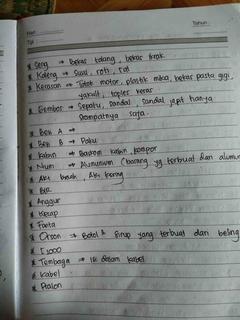 Hari
Tahun
Tgl
* Seng → Bekas talang, bekas
* Kaleng → Susu, roti, cat
* Kerasan → Totok motor, plastik mika, bekas pasta gigi,
yakult, toples keras
* Gembos → Sepatu, Sandal, Sandal jepit hanya
Sampahnya saja.
* Besi A →
* Besi B → Paku
* Kabin → Baskom kabin kompor
* Num → Alumunium (barang yg terbuat dari alumun
* Aki basah Aki kering
* Bir
* Anggur
* Kecap
* Fanta
* Orson → Botol Sirup yang terbuat dari beling
* I 1000
* Tembaga → Isi dalam kabel
* Kabel
* Pralon